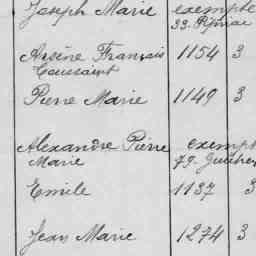 Joseph Marie exempté
33. Pipriac
Arsène Français 1154 3
Toussaint
Pierre Marie 1149 3
Alexandre Pierre exempt
Marie 79. Guichen
Emile 1137 3
Jean Marie 1274 3